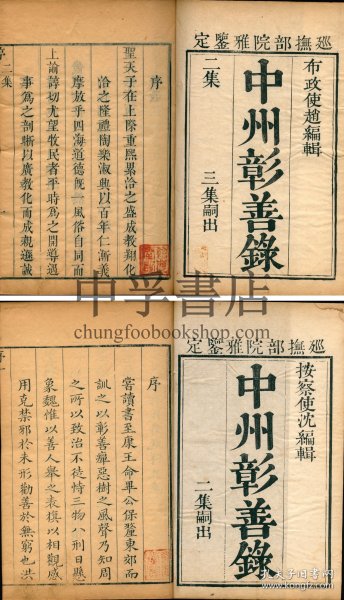 巡撫部院雅鑒定
布政使趙編輯
中州彰善錄
二集 三集嗣出
序
聖天子在上際重熙累洽之盛成教翔化
洽之隆禮陶樂淑興以百年仁漸義
摩放乎四海道德既一風俗自同而
上諭諄切尤望牧民者平時為之開導遇
事為之剖晰以廣教化而成親遜誠
序 二集
中孚書店
chungfoobookshop.com
巡撫部院雅鑒定
按察使沈編輯
中州彰善錄
二集嗣出
序
嘗讀書至康王命畢公保釐東郊而
訓之以彰善癉惡樹之風聲乃知周
之所以致治不徒恃三物八刑日縣
象魏惟以善人舉之表槙以相觀感
用克禁邪於未形勸善於無窮也洪